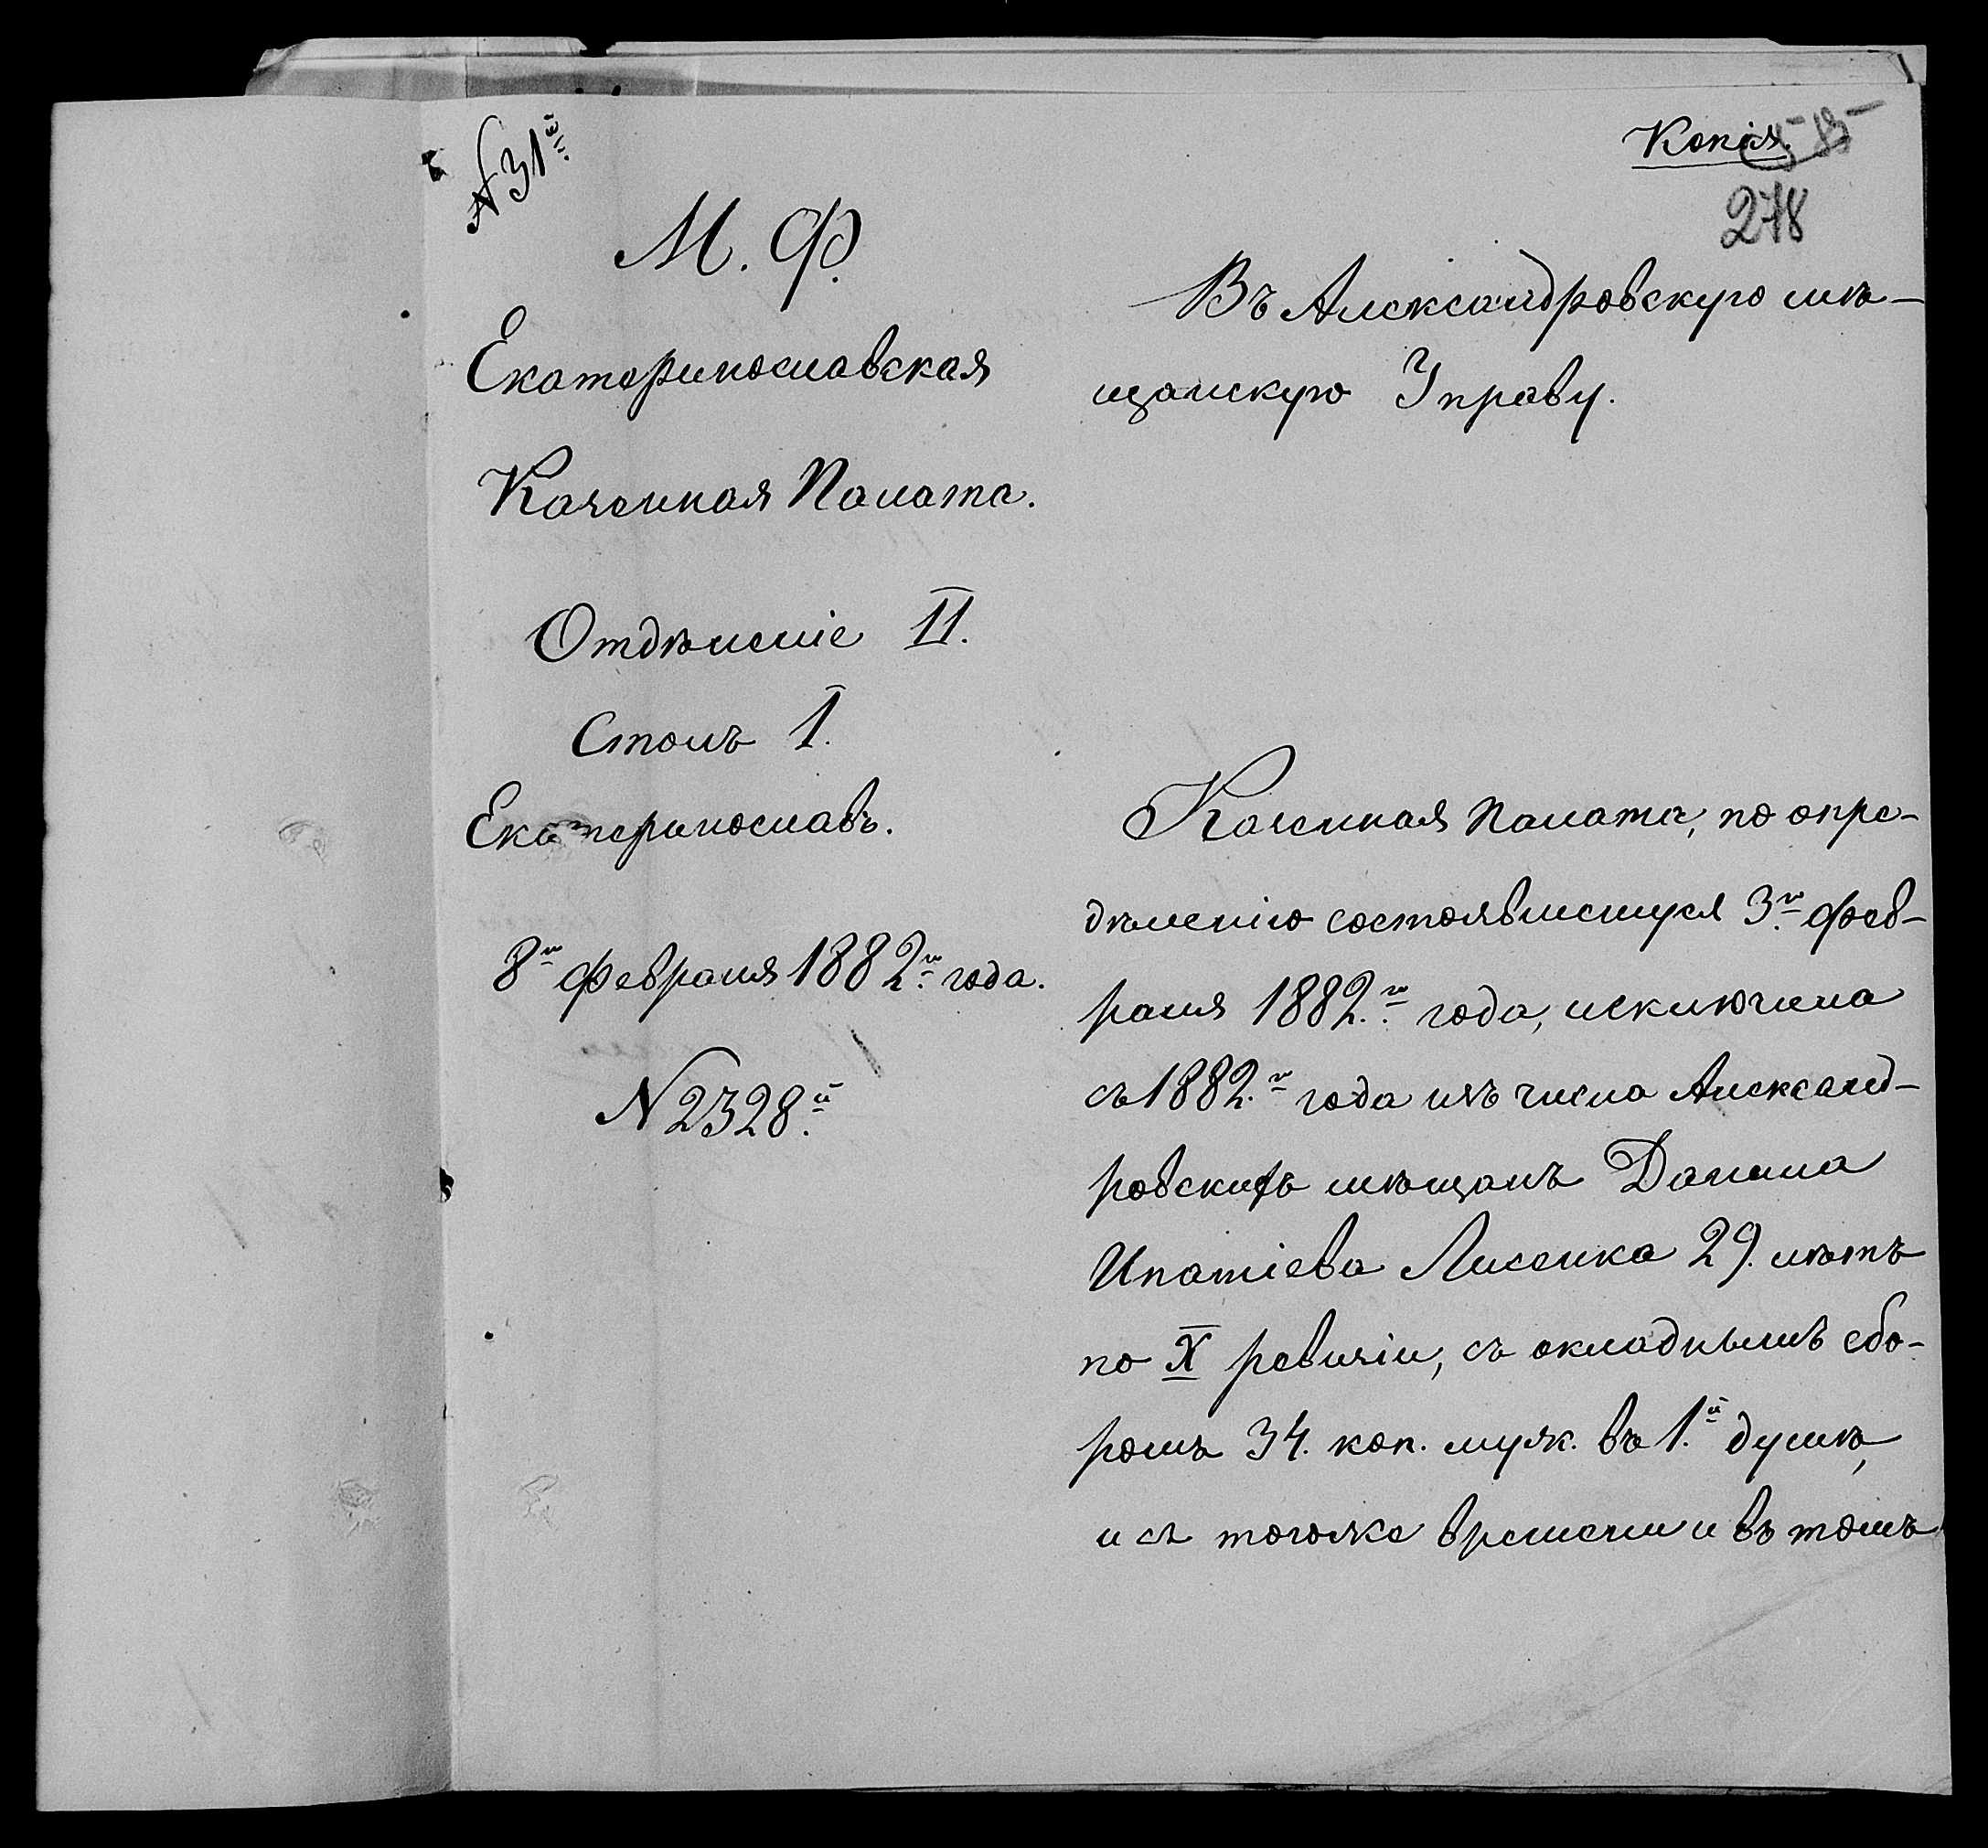 № 31й
Копія.
278
М. Ф.
Екатеринославская
Казенная Палата.
Отдѣленіе II.
Столъ 1.
Екатеринославъ.
8го февраля 1882го года.
№ 2328й
Въ Александровскую мѣ-
щанскую Управу.
Казенная Палата, по опре-
дѣленію состоявшемуся 3го фев-
раля 1882го года, исключила
съ 1882го года изъ числа Александ-
ровскихъ мѣщанъ Данила
Ипатіева Лисенка 29. лѣтъ
по X ревизіи, съ окладнымъ сбо-
ромъ 34. коп. муж. въ 1й душѣ,
и съ тогоже времени и въ томъ